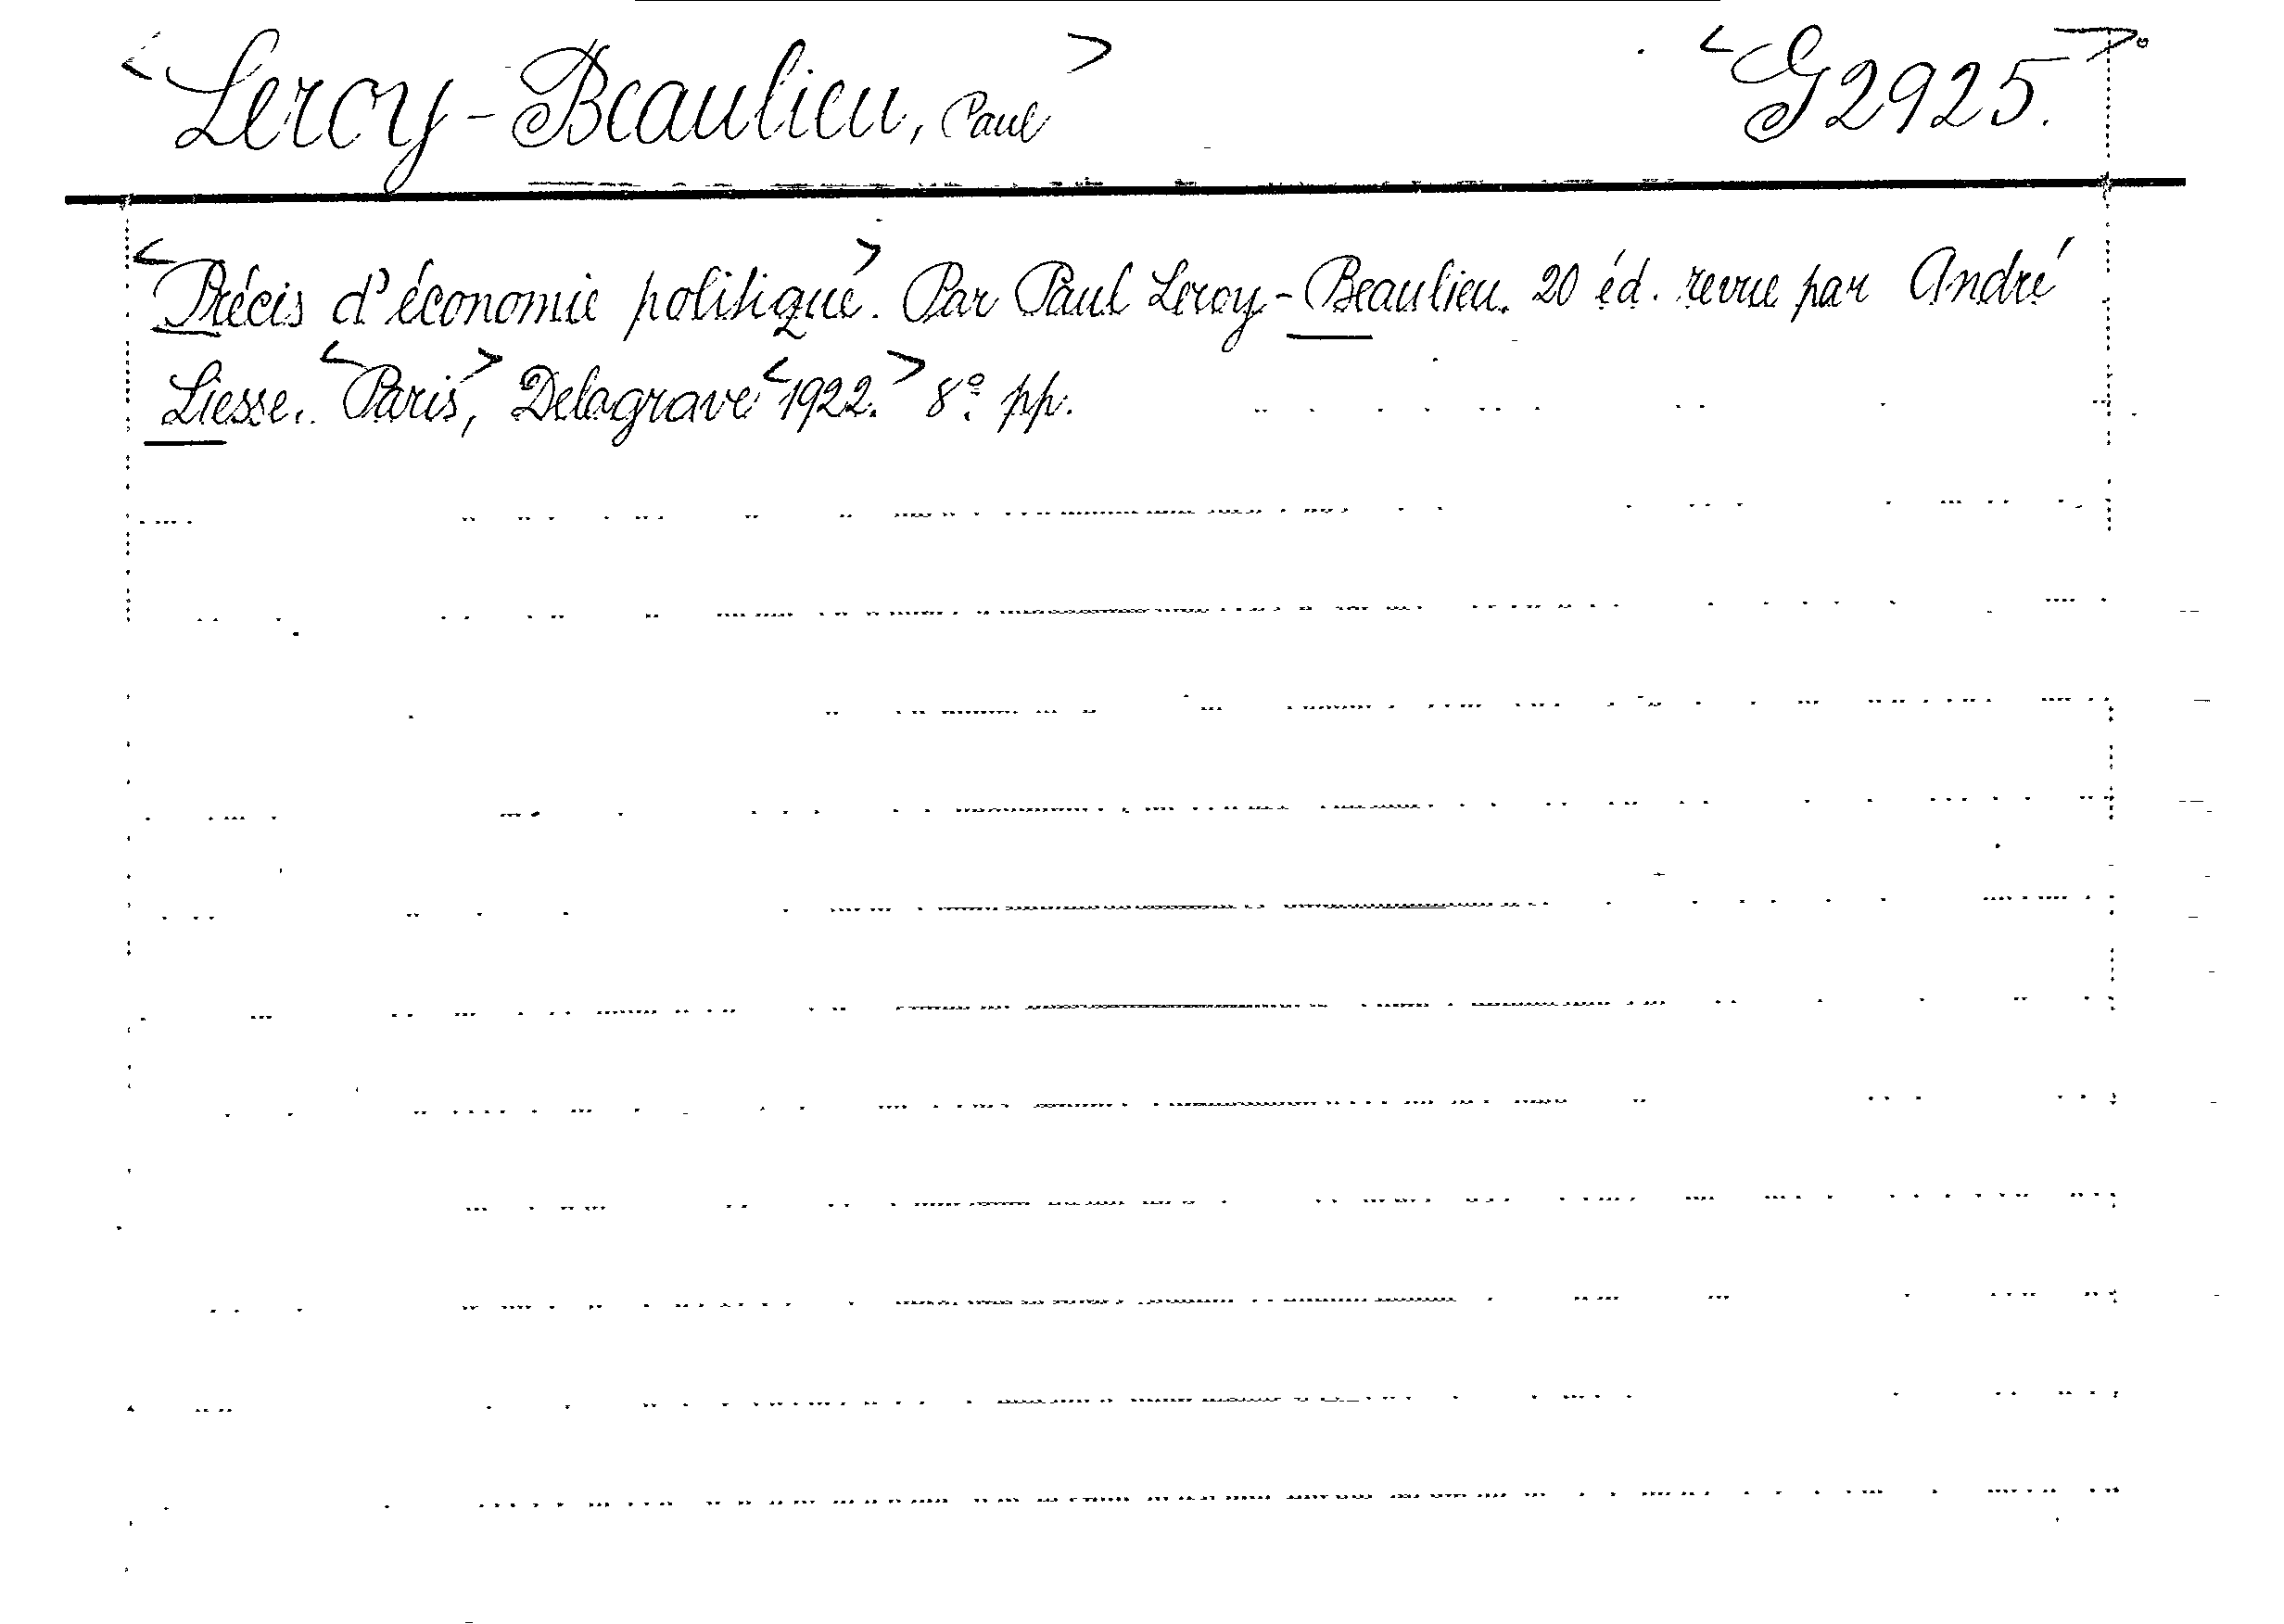 <Leroy-Beaulieu, Paul> <G 2925.>
<Précis d'économie politique>. Par Paul Leroy-Beaulieu. 20 éd. revue par André
Liesse. <Paris>, Delagrave <1922.> 8º. pp.